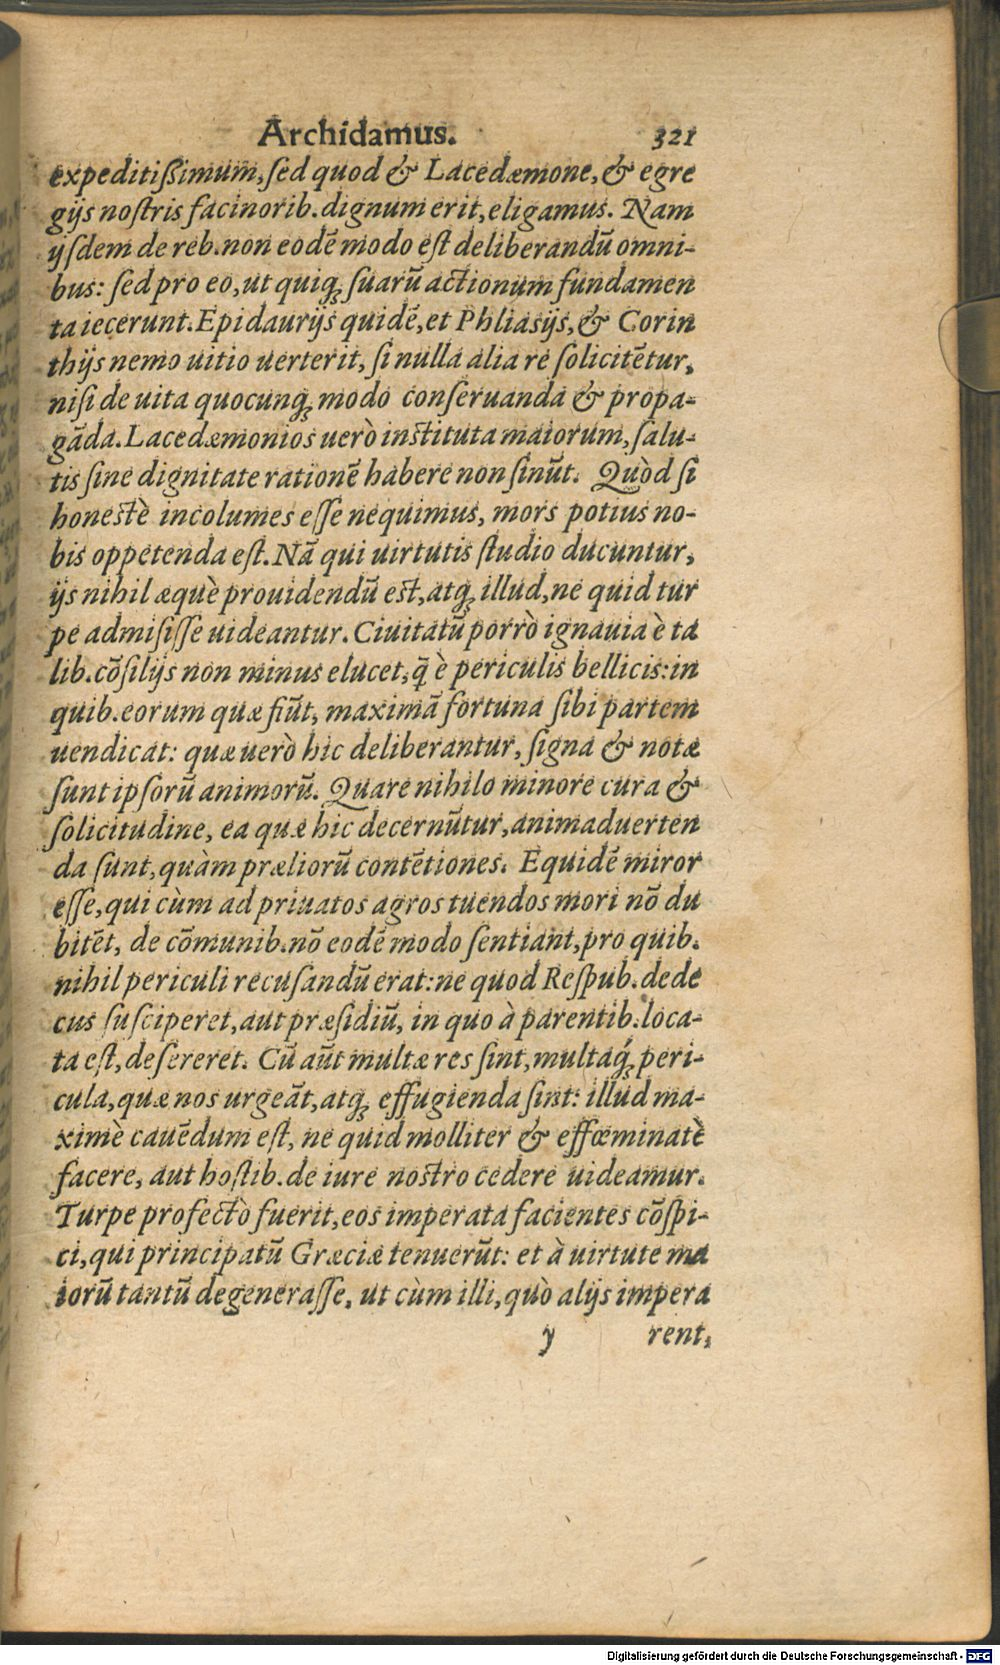 Archidamus. 321
expeditißimum, ſed quod & Lacedæmone, & egre
gijs noſtris facinorib. dignum erit, eligamus. Nam
ijſdem de reb. non eodē modo eſt deliberandū omni-
bus: ſed pro eo, ut quiq; ſuarū actionum fundamen
ta iecerunt. Epidaurijs quidē, et Phliasijs, & Corin
thijs nemo uitio uerterit, ſi nulla alia re ſolicitētur,
niſi de uita quocunq; modo conſeruanda & propa-
gāda. Lacedæmonios uerò instituta maiorum, ſalu-
tis ſine dignitate rationē habere non ſinūt. Quòd ſi
honestè incolumes eſſe nequimus, mors potius no-
bis oppetenda eſt. Nā qui uirtutis ſtudio ducuntur,
ijs nihil æquè prouidendū est, atq; illud, ne quid tur
pe admiſiſſe uideantur. Ciuitatū porrò ignauia è ta
lib. cōſilijs non minus elucet, q̄ è periculis bellicis: in
quib. eorum quæ fiūt, maximā fortuna ſibi partem
uendicat: quæ uerò hic deliberantur, ſigna & notæ
ſunt ipſorū animorū. Quare nihilo minore cura &
ſolicitudine, ea quæ hic decernūtur, animaduerten
da ſunt, quàm præliorū contētiones. Equidē miror
eſſe, qui cùm ad priuatos agros tuendos mori nō du
bitēt, de cōmunib. nō eodē modo ſentiant, pro quib.
nihil periculi recuſandū erat: ne quod Reſpub. dede
cus ſuſciperet, aut præſidiū, in quo à parentib. loca-
ta eſt, deſereret. Cū aūt multæ res ſint, multaq́; peri-
cula, quæ nos urgeāt, atq; effugienda ſint: illud ma-
ximè cauēdum eſt, ne quid molliter & effœminatè
facere, aut hoſtib. de iure nostro cedere uideamur.
Turpe profectò fuerit, eos imperata facientes cōſpi-
ci, qui principatū Græciæ tenuerūt: et à uirtute ma
iorū tantū degeneraſſe, ut cùm illi, quò alijs impera
y rent,
Digitalisierung gefördert durch die Deutsche Forschungsgemeinschaft - DFG